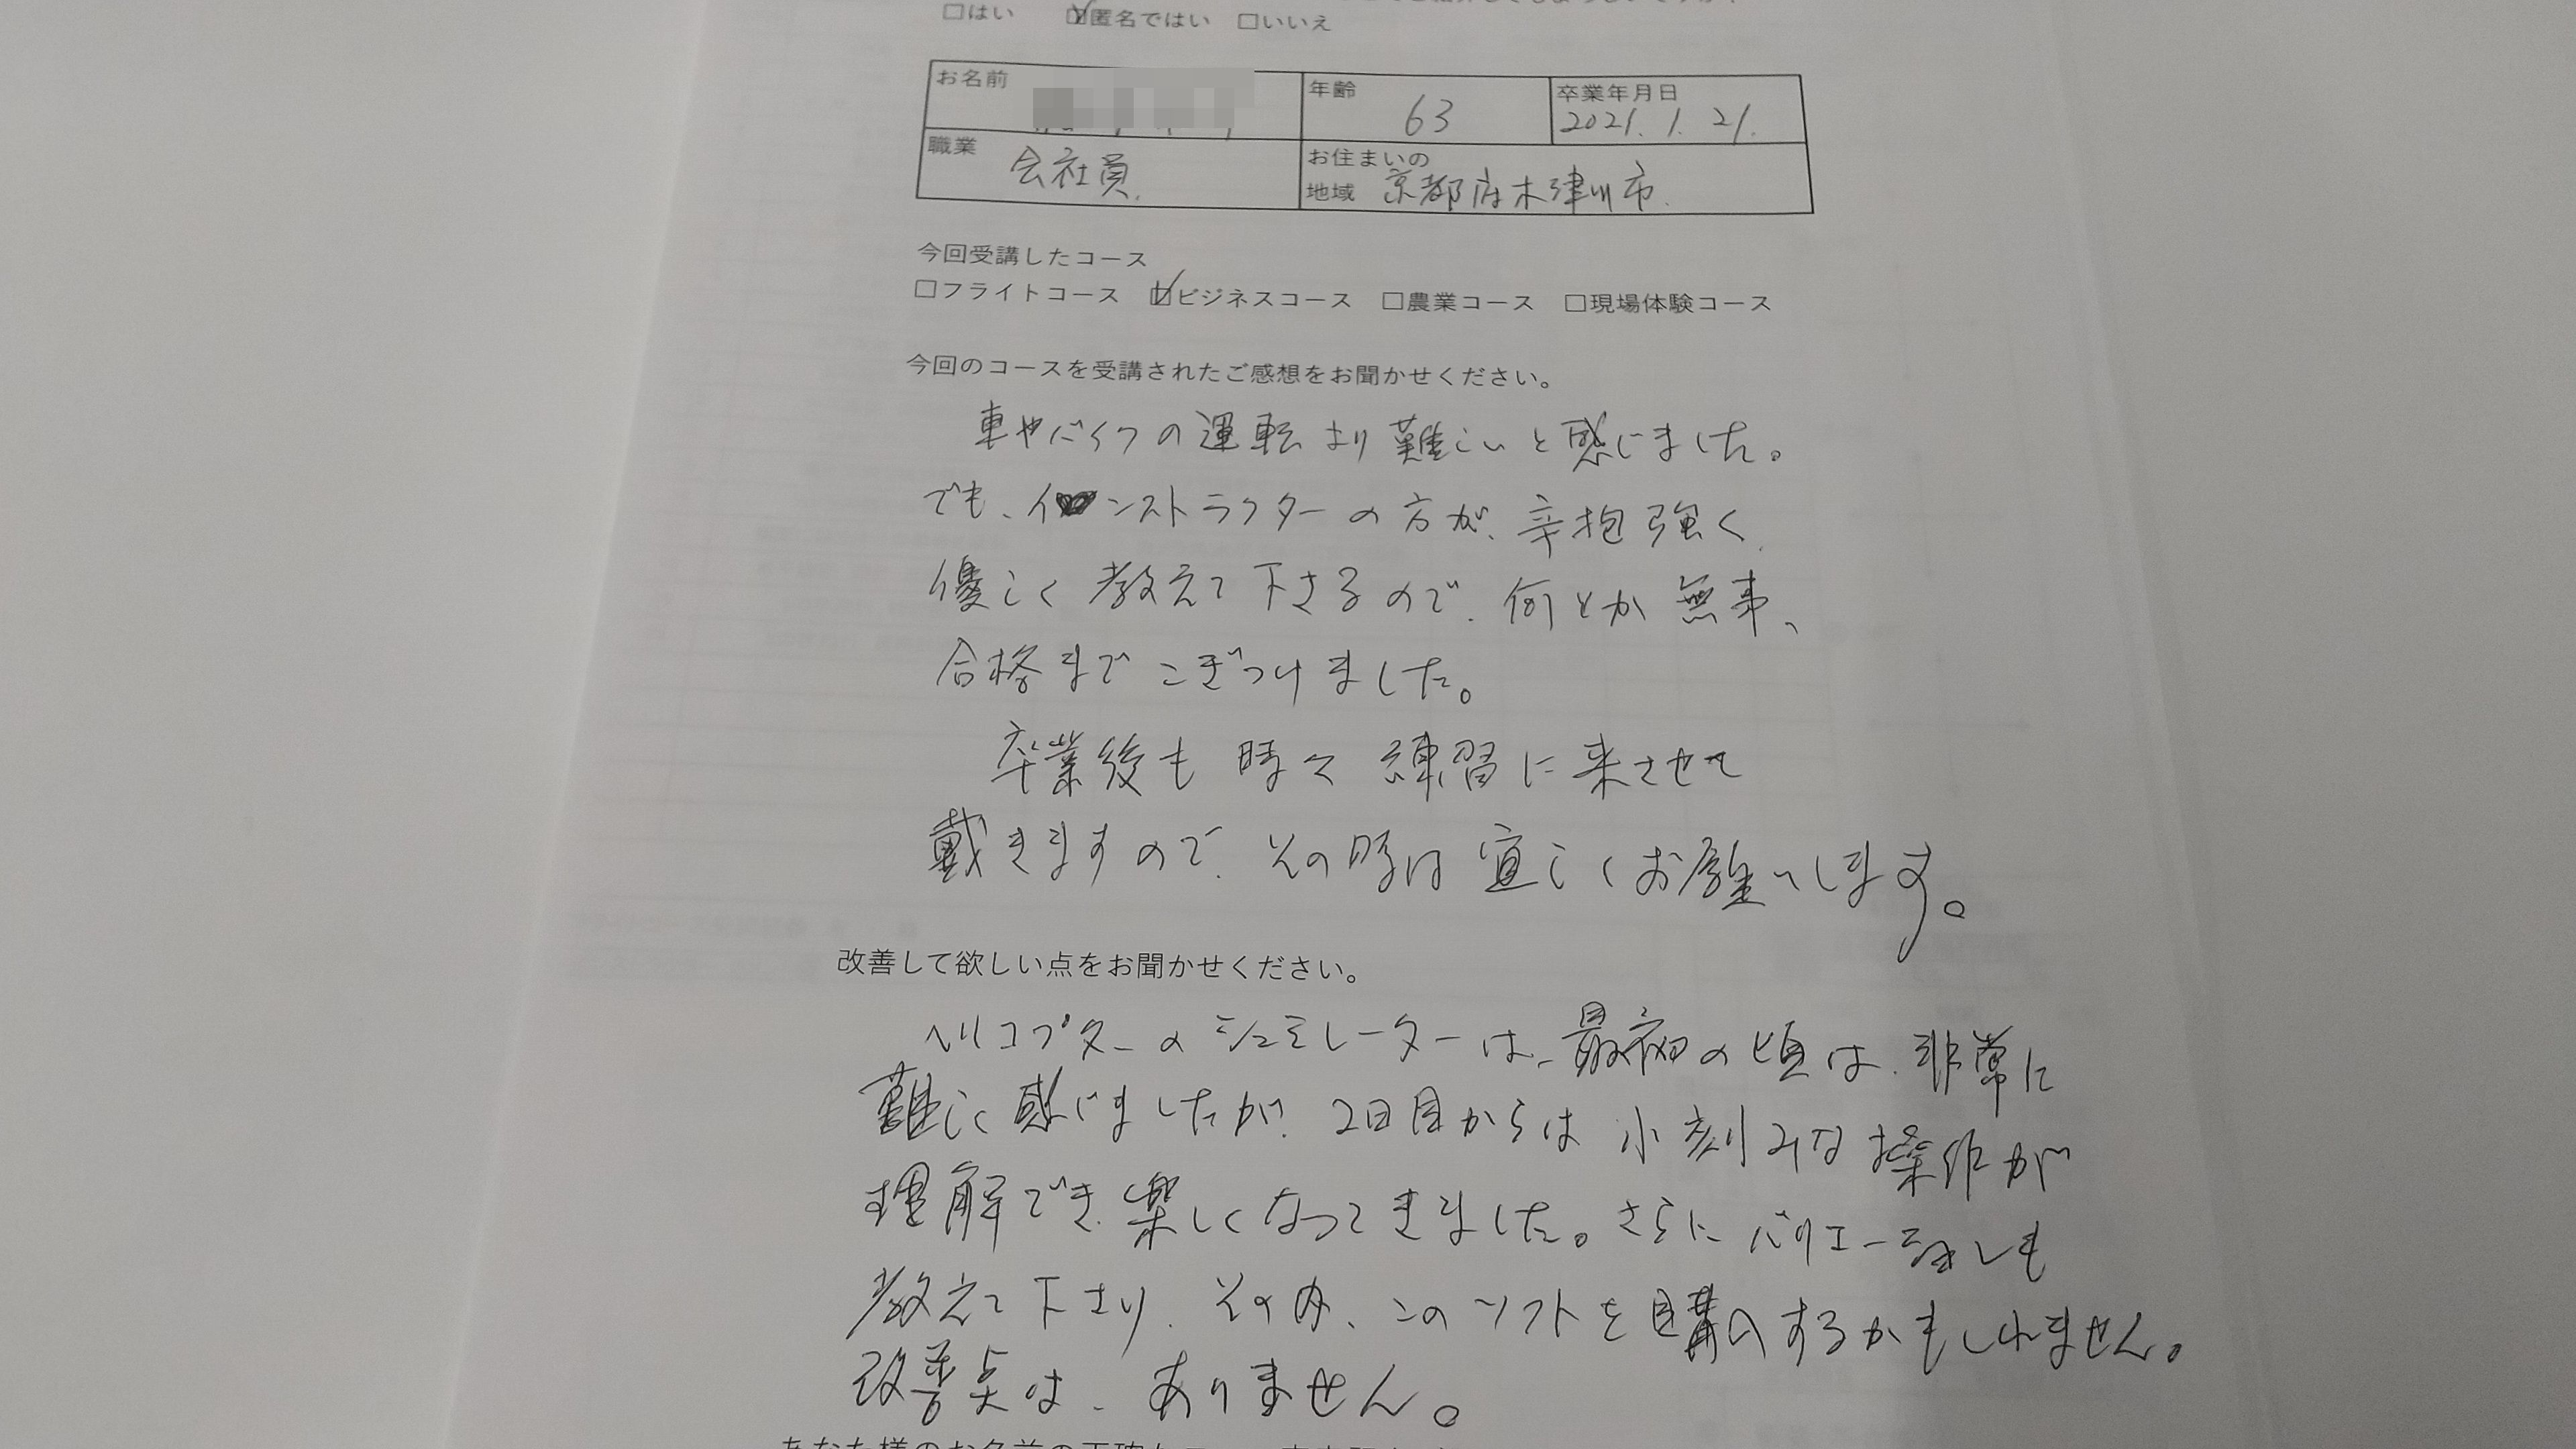 □はい ☑匿名ではい □いいえ
お名前
年齢 63
卒業年月日 2021. 1. 21.
職業 会社員
お住まいの地域 京都府木津川市
今回受講したコース
□フライトコース ☑ビジネスコース □農業コース □現場体験コース
今回のコースを受講されたご感想をお聞かせください。
車やバイクの運転より難しいと感じました。
でも、インストラクターの方が、辛抱強く、
優しく教えて下さるので、何とか無事、
合格までこぎつけました。
卒業後も時々練習に来させて
戴きますので、その時は宜しくお願いします。
改善して欲しい点をお聞かせください。
ヘリコプターのシュミレーターは、最初の頃は、非常に
難しく感じましたが、2日目からは小刻みな操作が
理解でき、楽しくなってきました。さらにバリエーションも
教えて下さり、その内、このソフトを購入するかもしれません。
改善点は、ありません。